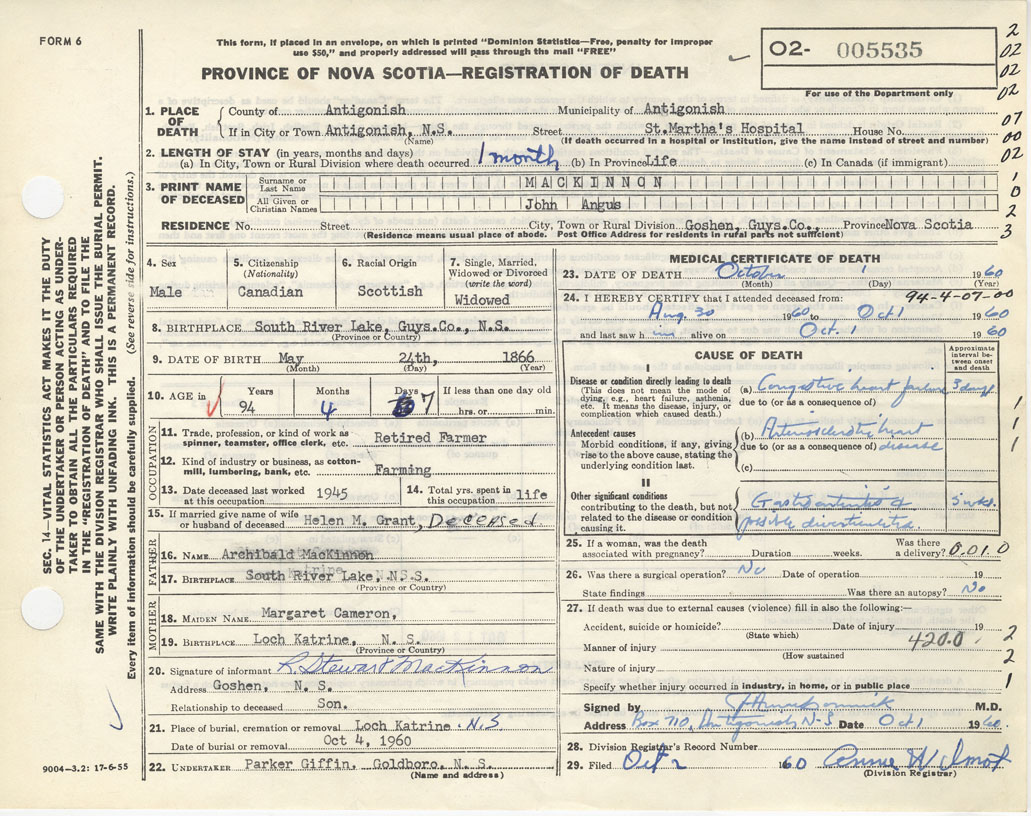 FORM 6
This form, if placed in an envelope, on which is printed "Dominion Statistics—Free, penalty for improper
use $50," and properly addressed will pass through the mail "FREE"
PROVINCE OF NOVA SCOTIA—REGISTRATION OF DEATH
02- 005535
For use of the Department only
2
02
02
02
07
00
02
1
0
2
3
1. PLACE OF DEATH
County of Antigonish Municipality of Antigonish
If in City or Town Antigonish, N.S. Street St.Martha's Hospital House No.
(Name) (If death occurred in a hospital or institution, give the name instead of street and number)
2. LENGTH OF STAY (in years, months and days)
(a) In City, Town or Rural Division where death occurred 1 month (b) In Province Life (c) In Canada (if immigrant)
3. PRINT NAME OF DECEASED
Surname or Last Name MACKINNON
All Given or Christian Names John Angus
RESIDENCE No. Street City, Town or Rural Division Goshen, Guys.Co., Province Nova Scotia
(Residence means usual place of abode. Post Office Address for residents in rural parts not sufficient)
4. Sex
Male
5. Citizenship
(Nationality)
Canadian
6. Racial Origin
Scottish
7. Single, Married,
Widowed or Divorced
(write the word)
Widowed
8. BIRTHPLACE South River Lake, Guys.Co., N.S.
(Province or Country)
9. DATE OF BIRTH May 24th, 1866
(Month) (Day) (Year)
10. AGE in
Years Months Days If less than one day old
94 4 7 hrs. or min.
OCCUPATION
11. Trade, profession, or kind of work as
spinner, teamster, office clerk, etc. Retired Farmer
12. Kind of industry or business, as cotton-
mill, lumbering, bank, etc. Farming
13. Date deceased last worked
at this occupation 1945
14. Total yrs. spent in
this occupation life
15. If married give name of wife
or husband of deceased Helen M. Grant, Deceased.
FATHER
16. NAME Archibald MacKinnon
17. BIRTHPLACE South River Lake, N.S.
(Province or Country)
MOTHER
18. MAIDEN NAME Margaret Cameron,
19. BIRTHPLACE Loch Katrine, N. S.
(Province or Country)
20. Signature of informant R. Stewart MacKinnon
Address Goshen, N. S.
Relationship to deceased Son.
21. Place of burial, cremation or removal Loch Katrine N.S
Date of burial or removal Oct 4, 1960
22. UNDERTAKER Parker Giffin, Goldboro, N. S.
(Name and address)
MEDICAL CERTIFICATE OF DEATH
23. DATE OF DEATH October 1 1960
(Month) (Day) (Year)
94-4-07-00
24. I HEREBY CERTIFY that I attended deceased from:
Aug. 30 1960 to Oct 1 1960
and last saw him alive on Oct. 1 1960
CAUSE OF DEATH
Approximate
interval be-
tween onset
and death
I
Disease or condition directly leading to death
(This does not mean the mode of
dying, e.g., heart failure, asthenia,
etc. It means the disease, injury, or
complication which caused death.)
(a) Congestive heart failure 3 days
due to (or as a consequence of)
Antecedent causes
Morbid conditions, if any, giving
rise to the above cause, stating the
underlying condition last.
(b) Arteriosclerotic heart
due to (or as a consequence of) disease
(c)
II
Other significant conditions
contributing to the death, but not
related to the disease or condition
causing it.
Gastroenteritis &
possible diverticulitis
5 wks.
1
1
1
25. If a woman, was the death
associated with pregnancy? Duration weeks.
Was there
a delivery? 0.01.0
26. Was there a surgical operation? No Date of operation 19
State findings Was there an autopsy? No
27. If death was due to external causes (violence) fill in also the following:—
Accident, suicide or homicide? Date of injury 19
(State which)
Manner of injury 420.0
(How sustained)
Nature of injury
Specify whether injury occurred in industry, in home, or in public place
2
2
1
Signed by M.D.
Address Box 710, Antigonish N-S Date Oct 1 1960
28. Division Registrar's Record Number
29. Filed Oct 2 1960 Connie Wilmot
(Division Registrar)
SEC. 14—VITAL STATISTICS ACT MAKES IT THE DUTY
OF THE UNDERTAKER OR PERSON ACTING AS UNDER-
TAKER TO OBTAIN ALL THE PARTICULARS REQUIRED
IN THE "REGISTRATION OF DEATH" AND TO FILE THE
SAME WITH THE DIVISION REGISTRAR WHO SHALL ISSUE THE BURIAL PERMIT.
WRITE PLAINLY WITH UNFADING INK. THIS IS A PERMANENT RECORD.
Every item of information should be carefully supplied. (See reverse side for instructions.)
9004—3.2: 17-6-55